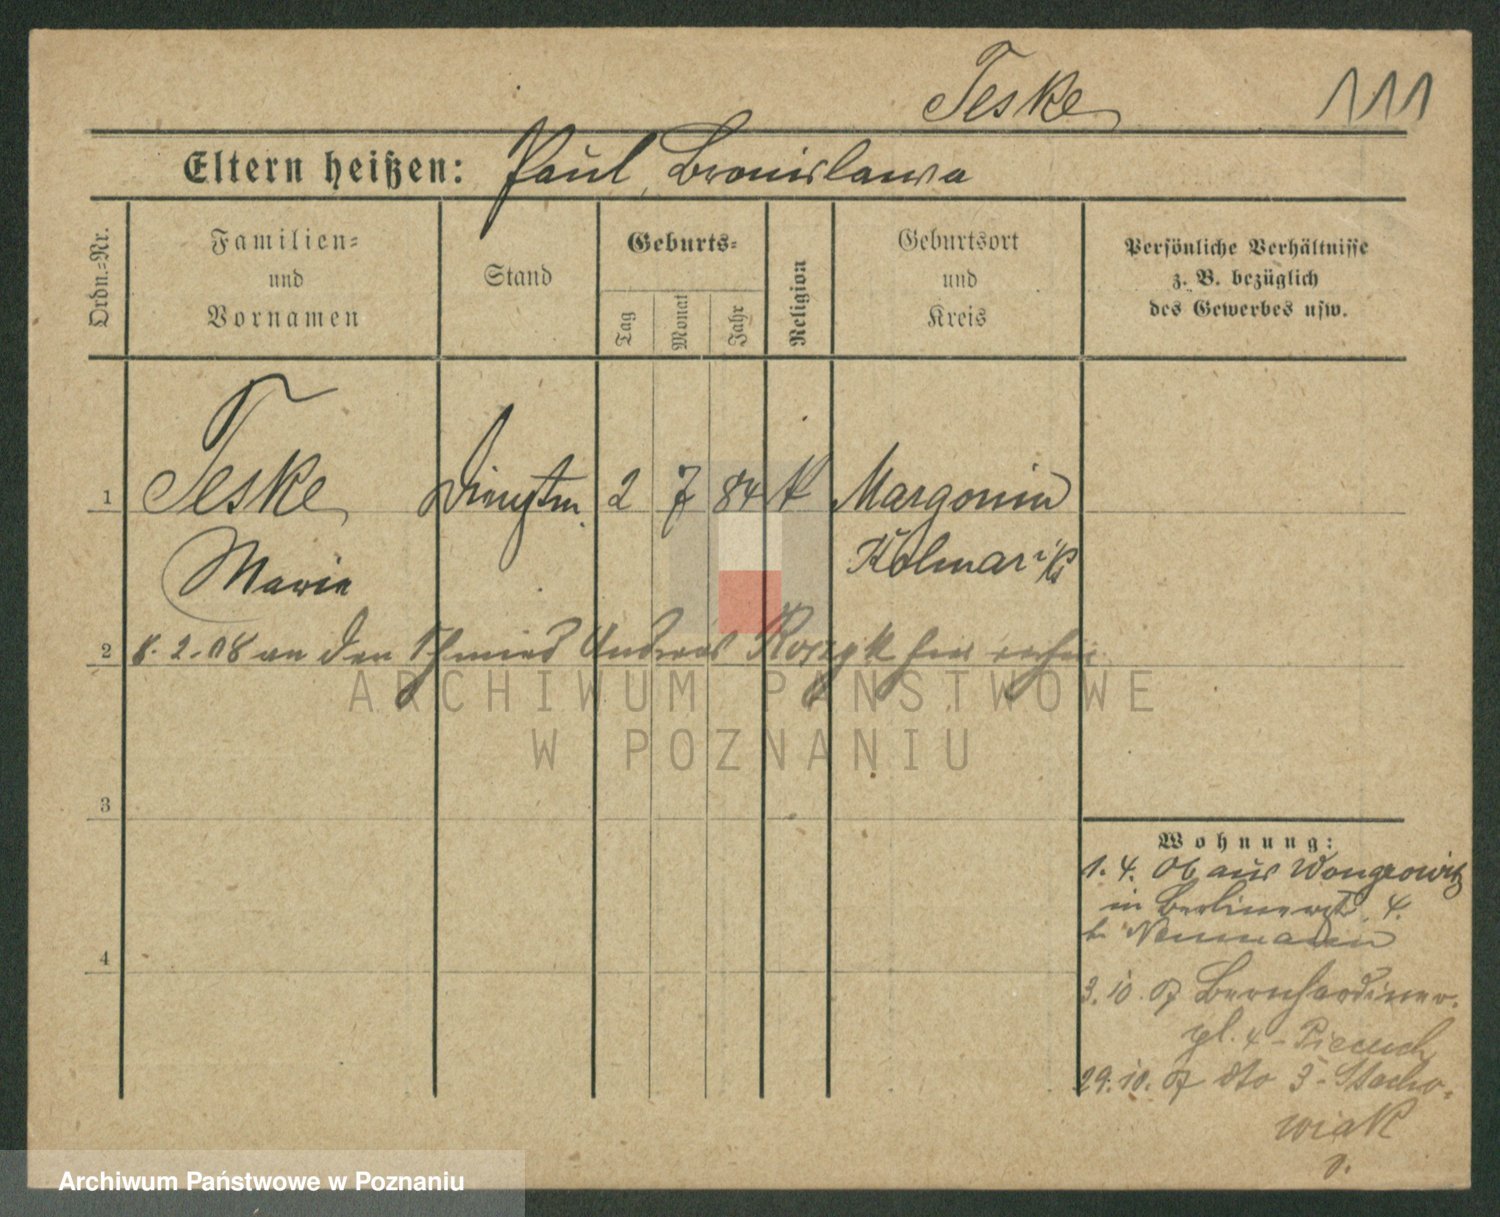 Teske 111
Eltern heißen: Paul, Bronislawa
Ordn.=Nr.
Familien=
und
Vornamen
Stand
Geburts=
Tag
Monat
Jahr
Religion
Geburtsort
und
Kreis
Persönliche Verhältnisse
z. B. bezüglich
des Gewerbes usw.
1 Teske Dienstm. 2 7 84 K Margonin
Marie Kolmar i/P
2 8. 2. 08 an den Schmied Andreas Koszyk hier
ARCHIWUM PAŃSTWOWE
W POZNANIU
3
4
Wohnung:
1. 4. 06 aus Wongrowitz
in Berlinerst. 4.
b Neumann
3. 10. 07 Bernhardiner-
pl. 4 -
29. 10. 07 dto 3 - Stacho-
wiak
Archiwum Państwowe w Poznaniu